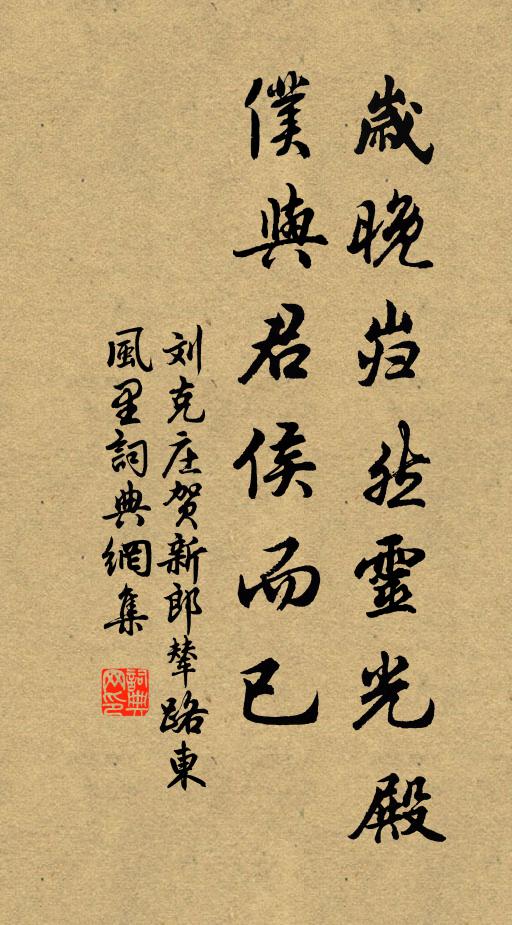 歲晚岿然靈光殿
僕與君侯而已
刘克庄贺新郎輦路東
風里詞典網集
詞典
网印